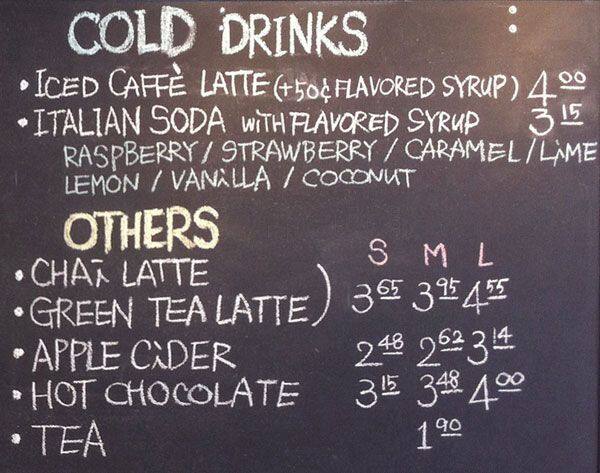 COLD DRINKS
• ICED CAFFÈ LATTE (+50¢ FLAVORED SYRUP) 4.00
• ITALIAN SODA WITH FLAVORED SYRUP 3.15
RASPBERRY / STRAWBERRY / CARAMEL / LIME
LEMON / VANILLA / COCONUT
OTHERS
S M L
• CHAI LATTE
• GREEN TEA LATTE ) 3.65 3.95 4.55
• APPLE CIDER 2.48 2.62 3.14
• HOT CHOCOLATE 3.15 3.48 4.00
• TEA 1.90